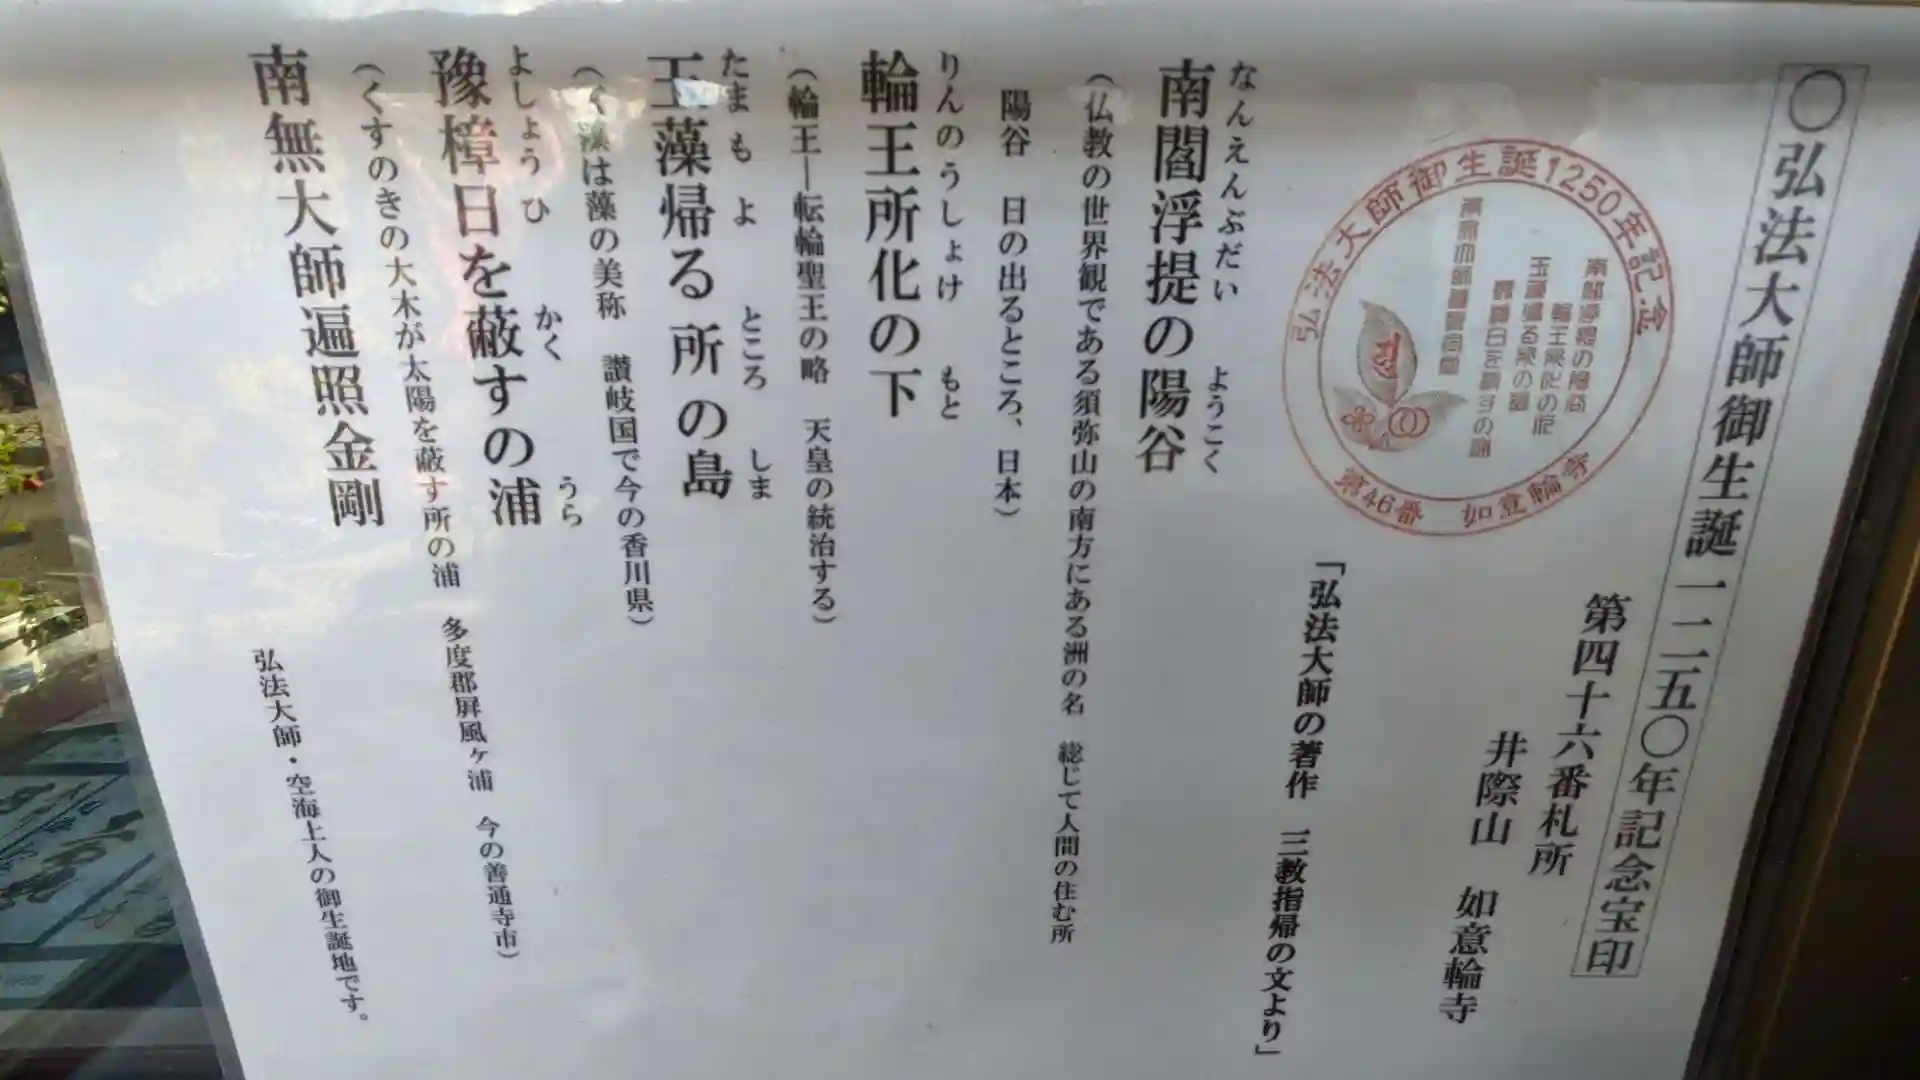 〇弘法大師御生誕一二五〇年記念宝印
第四十六番札所
井際山 如意輪寺
弘法大師御生誕1250年記念
第46番 如意輪寺
「弘法大師の著作 三教指帰の文より」
なんえんぶだい ようこく
南閻浮提の陽谷
(仏教の世界観である須弥山の南方にある洲の名 総じて人間の住む所
陽谷 日の出るところ、日本)
りんのうしょけ もと
輪王所化の下
(輪王―転輪聖王の略 天皇の統治する)
たまもよ ところ しま
玉藻帰る所の島
藻は藻の美称 讃岐国で今の香川県)
よしょうひ かく うら
豫樟日を蔽すの浦
(くすのきの大木が太陽を蔽す所の浦 多度郡屏風ヶ浦 今の善通寺市)
南無大師遍照金剛
弘法大師・空海上人の御生誕地です。